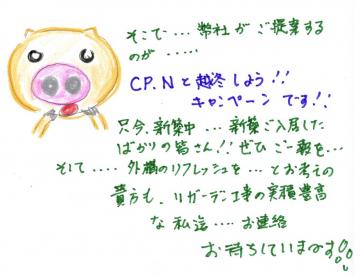 そこで…‥ 弊社が ご提案する
のが ‥…
CP.Nと越冬しよう!!
キャンペーン です!!
只今、新築中 … 新築ご入居した
ばかりの皆さん!! ぜひ ご一報を…
そして ‥‥ 外構のリフレッシュを … とお考えの
貴方も、リガーデン工事の実績豊富
な 私迄 ‥‥ お連絡
お待ちしています!!